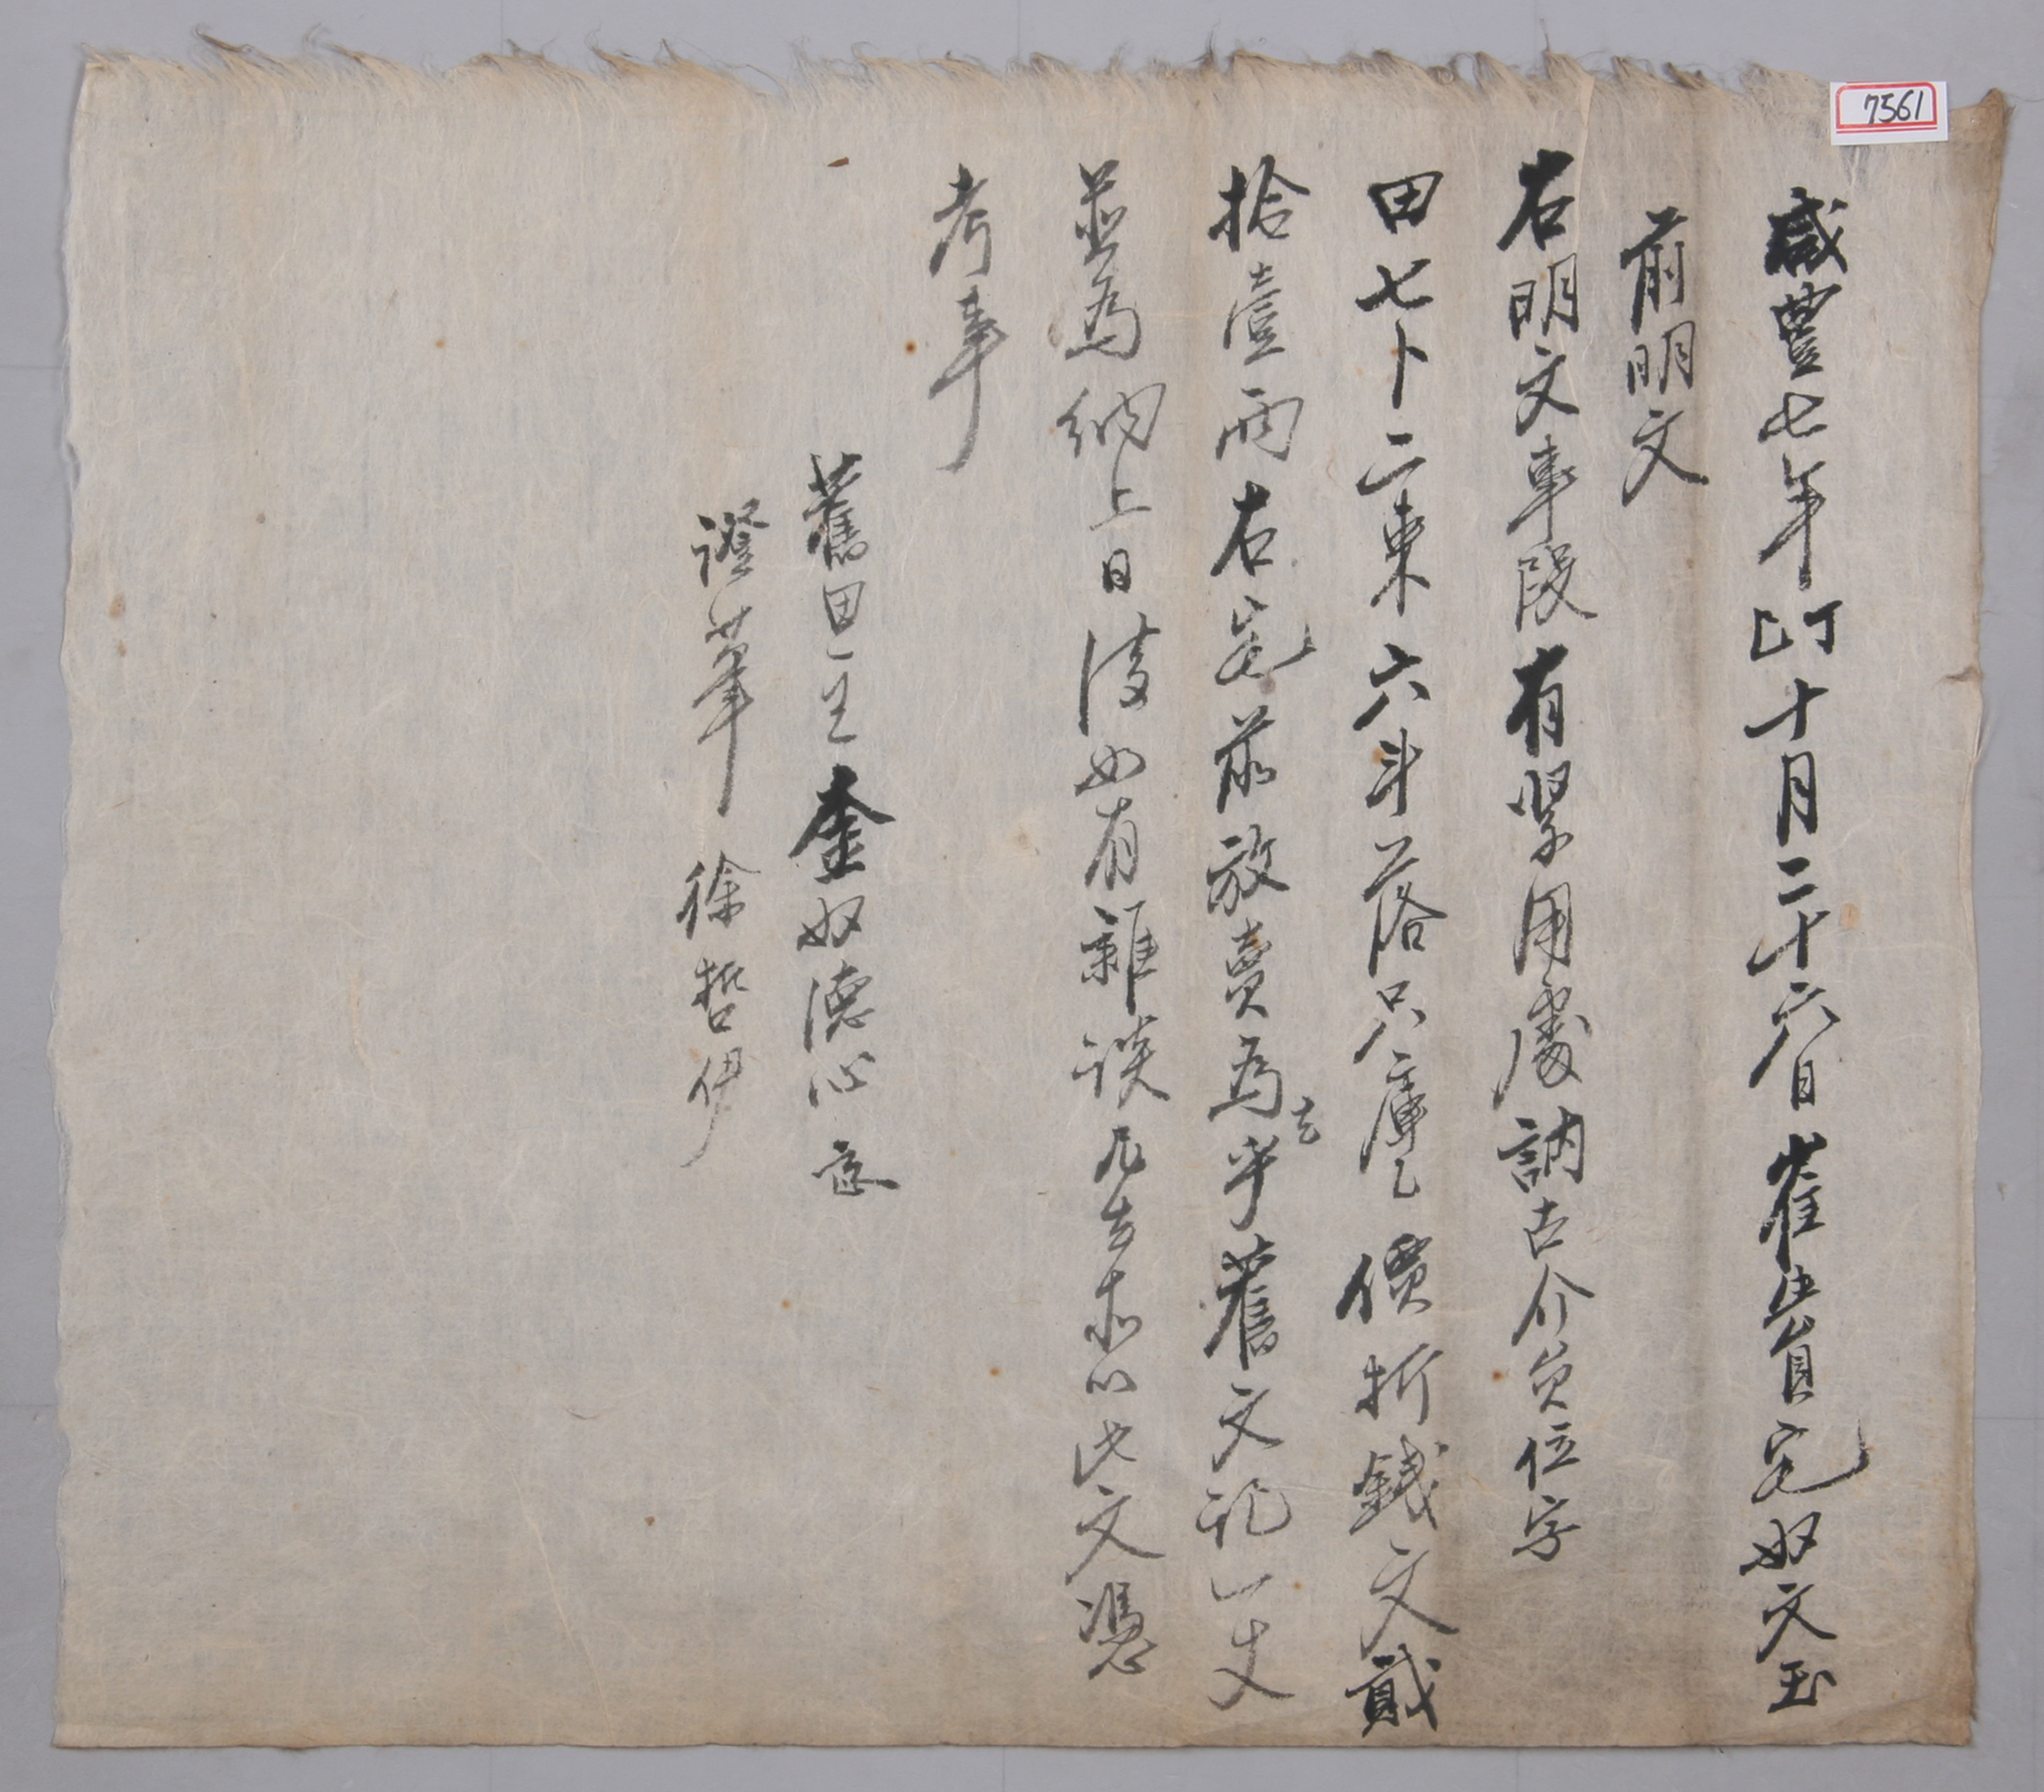 7561
咸豐七年丁巳十月二十六日崔貴宅奴文玉
前明文
右明文事段有緊用處訥古介員位字
田七卜二束六斗落只庫乙價折錢文貳
拾壹兩右宅前放賣爲去乎舊文記一丈
並爲納上日後如有雜談凡去等以此文憑
考事
舊田主金奴德心
證筆徐哲伊